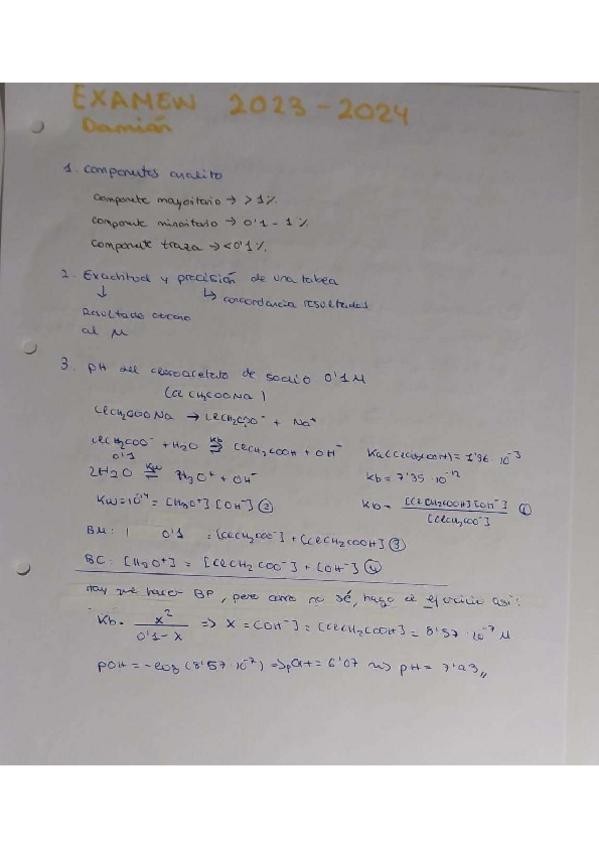 EXAMEN 2023-2024
Damián
1. Componentes analito
Componente mayoritario → > 1%
Componente minoritario → 0'1 - 1%
Componente traza → <0'1%
2. Exactitud y precisión de una tabea
↓ ↳ concordancia resultados
Resultado cercano
al μ
3. pH del cloroacetato de sodio 0'1M
(ClCH2COONa)
ClCH2COONa → ClCH2COO⁻ + Na⁺
ClCH2COO⁻ + H2O ⇌ ClCH2COOH + OH⁻ Ka(ClCH2COOH) = 1'36·10⁻³
0'1 Kb
2H2O ⇌ H3O⁺ + OH⁻ Kb = 7'35·10⁻¹²
Kw
Kw = 10⁻¹⁴ = [H3O⁺][OH⁻] ② Kb = [ClCH2COOH][OH⁻] / [ClCH2COO⁻] ①
BM: 0'1 = [ClCH2COO⁻] + [ClCH2COOH] ③
BC: [H3O⁺] = [ClCH2COO⁻] + [OH⁻] ④
Hay que hacer BP, pero como no sé, hago el ejercicio así:
Kb = x² / 0'1 - x => x = [OH⁻] = [ClCH2COOH] = 8'57·10⁻⁷ M
pOH = -log (8'57·10⁻⁷) => pOH = 6'07 ⇝ pH = 7'93